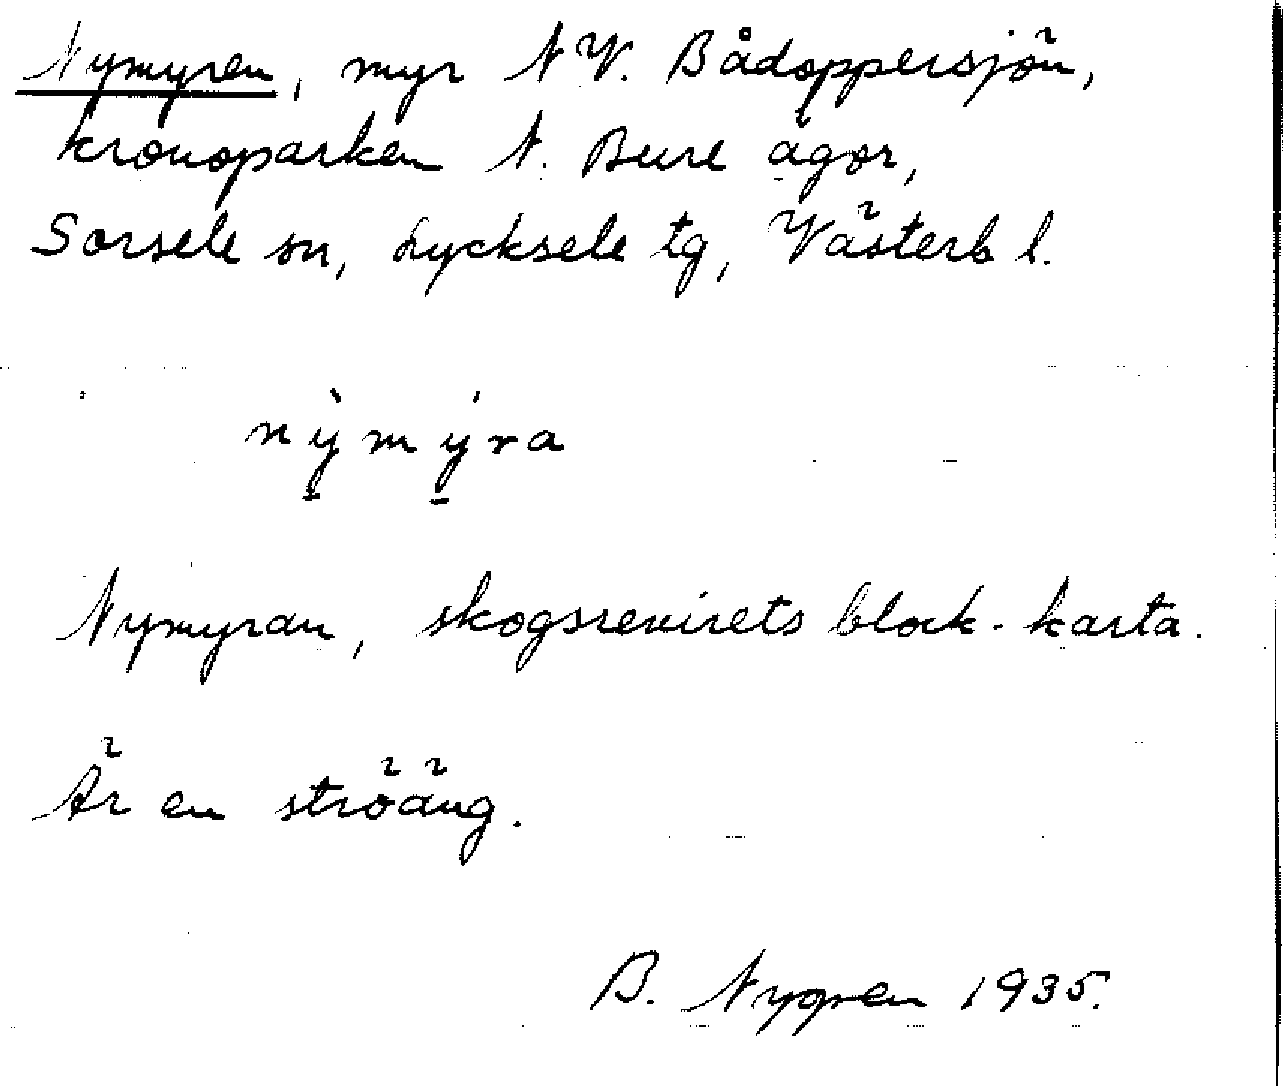 Nymyren, myr NV. Bådoppersjön,
kronoparken N. Bure ägor,
Sorsele sn, Lycksele tg, Västerb l.
nỳ̠mý̠ra
Nymyran, skogsrevirets block-karta.
Är en ströäng.
B. Nygren 1935.